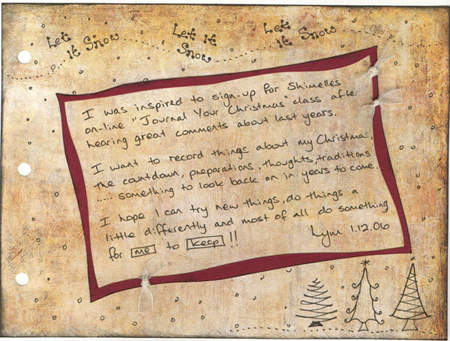 Let it Snow
Let It Snow
Let it Snow
I was inspired to sign-up for Shimelles
on-line "Journal Your Christmas" class after
hearing great comments about last years.
I want to record things about my Christmas,
the countdown, preparations, thoughts, traditions
..... something to look back on in years to come.
I hope I can try new things, do things a
little differently and most of all do something
for me to keep!!
Lynn 1.12.06